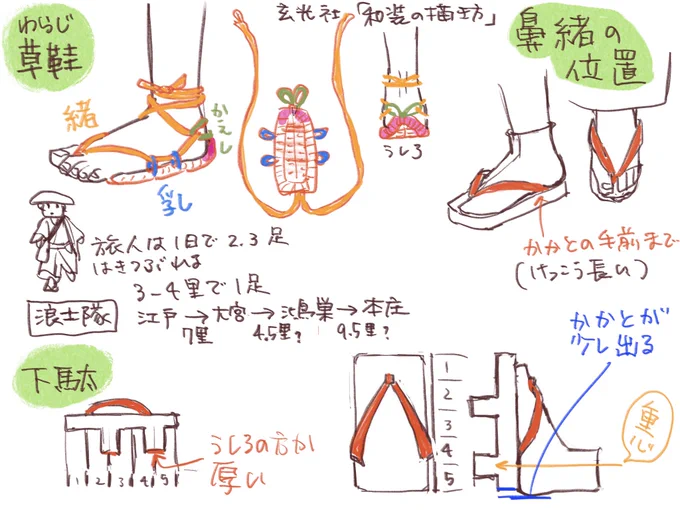 わらじ
草鞋
玄光社「和装の描き方」
鼻緒の
位置
緒
かえし
乳
うしろ
かかとの手前まで
(けっこう長い)
旅人は1日で2.3足
はきつぶれる
3-4里で1足
浪士隊
江戸→大宮→鴻巣→本庄
7里 4.5里? 9.5里?
下駄
1 2 3 4 5
うしろの方が
厚い
1
2
3
4
5
かかとが
少し出る
重心